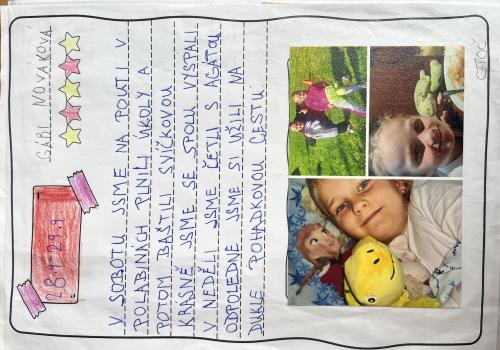 28.9.-29.9.
GÁBI NOVÁKOVÁ
V SOBOTU JSME NA POUTI V
POLABINÁCH PLNILI ÚKOLY A
POTOM BAŠTILI SVÍČKOVOU
KRÁSNĚ JSME SE SPOLU VYSPALI
V NEDĚLI JSME ČETLI S AGÁTOU
ODPOLEDNE JSME SI UŽILI NA
DUKLE POHÁDKOVOU CESTU
OTOČ